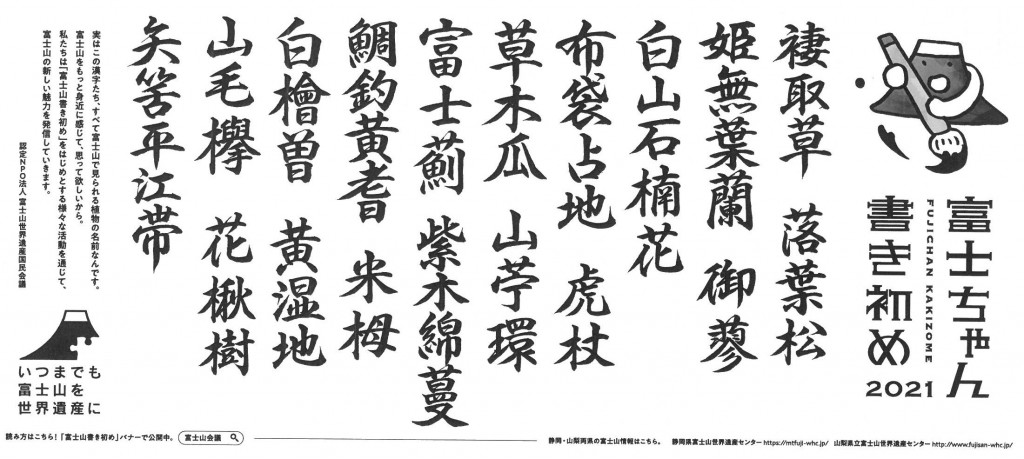 富士ちゃん
FUJICHAN KAKIZOME
書き初め
2021
褄取草 落葉松
姫無葉蘭 御蓼
白山石楠花
布袋占地 虎杖
草木瓜 山苧環
富士薊 紫木綿蔓
鯛釣黄耆 米栂
白檜曽 黄湿地
山毛欅 花楸樹
矢筈平江帯
実はこの漢字たち、すべて富士山で見られる植物の名前なんです。
富士山をもっと身近に感じて、思って欲しいから。
私たちは「富士山書き初め」をはじめとする様々な活動を通じて、
富士山の新しい魅力を発信していきます。
認定NPO法人 富士山世界遺産国民会議
いつまでも
富士山を
世界遺産に
読み方はこちら!「富士山書き初め」バナーで公開中。 富士山会議
静岡・山梨両県の富士山情報はこちら。 静岡県富士山世界遺産センター https://mtfuji-whc.jp/ 山梨県立富士山世界遺産センター http://www.fujisan-whc.jp/